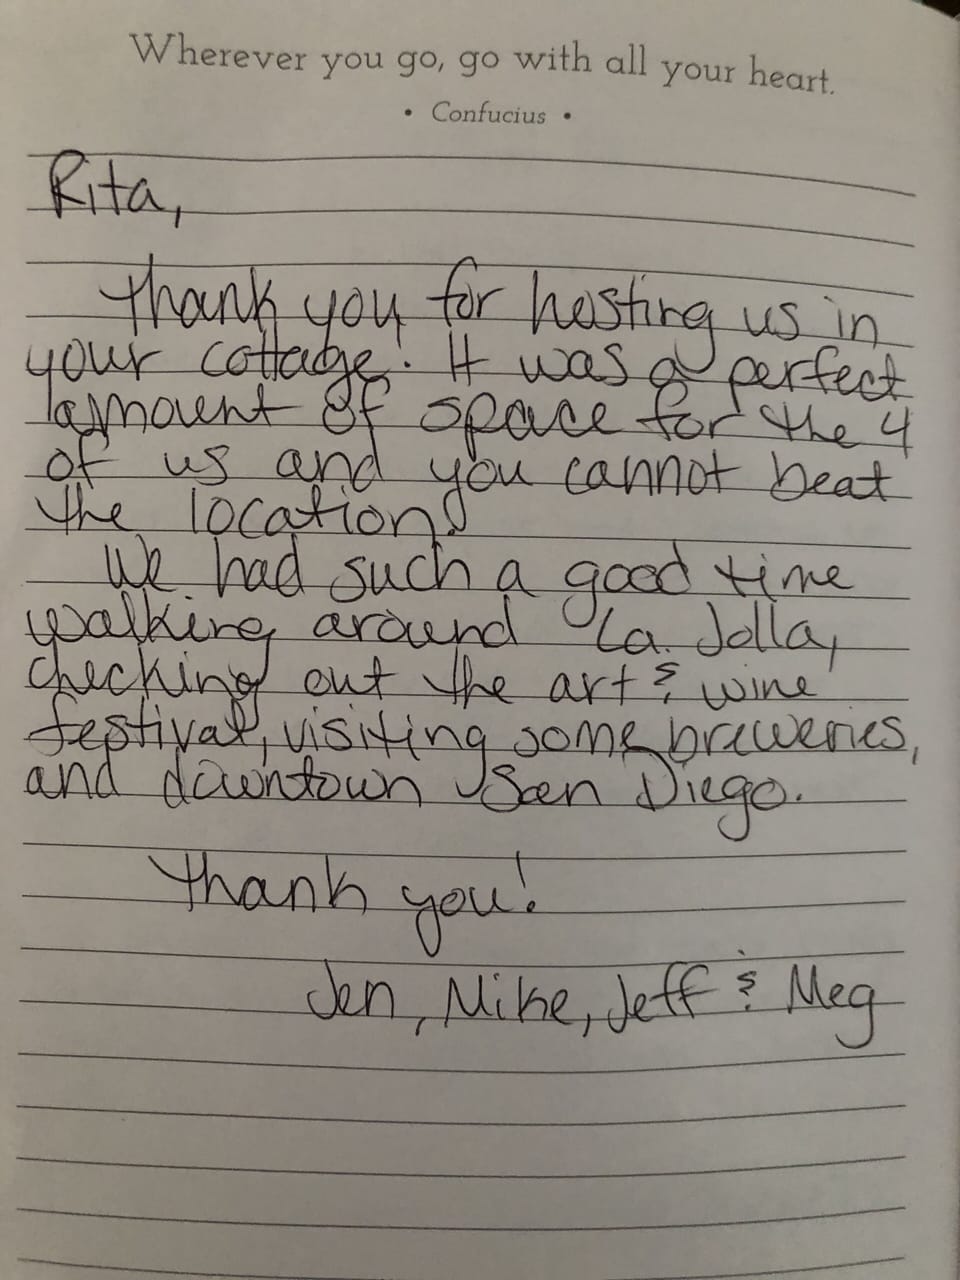 Wherever you go, go with all your heart.
• Confucius •
Rita,
Thank you for hosting us in
your cottage! It was a perfect
amount of space for the 4
of us and you cannot beat
the location!
We had such a good time
walking around La Jolla,
checking out the art & wine
festival, visiting some breweries,
and downtown San Diego.
Thank you!
Jen, Mike, Jeff & Meg